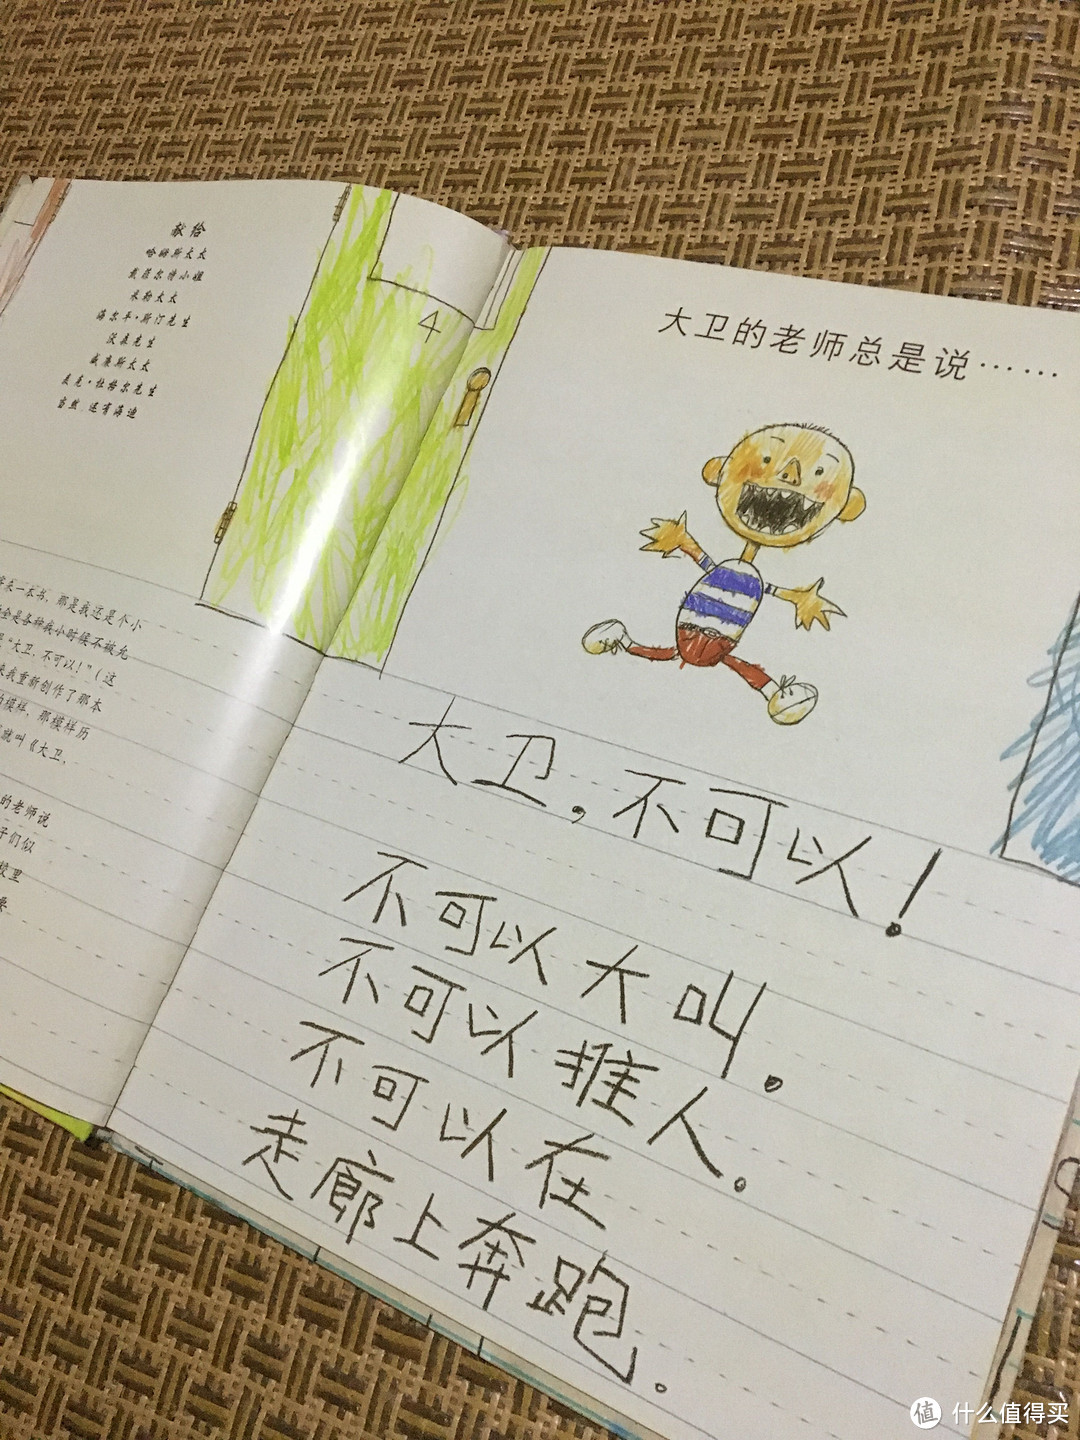 献给
哈姆斯太太
戴菲尔特小姐
米勒太太
海尔平·斯汀先生
汉森先生
威廉斯太太
麦克·杜格尔先生
当然 还有海迪
4
寄来一本书，那是我还是个小
全是各种我小时候不被允
“大卫，不可以！”（这
来我重新创作了那本
的模样，那模样历
就叫《大卫，
的老师说
子们似
校里
要
大卫的老师总是说……
大卫，不可以！
不可以大叫。
不可以推人。
不可以在
走廊上奔跑。
值 什么值得买